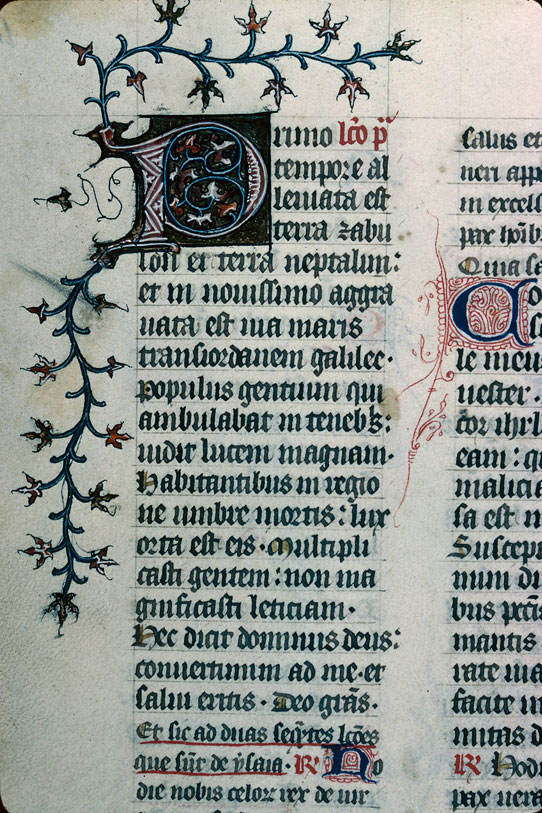 Primo lc̄o p̄
tempore al
leuiata est
terra zabu
lon et terra neptalim:
et in nouissimo aggra
uata est uia maris
transiordanem galilee·
populus gentium qui
ambulabat in tenebꝫ:
uidit lucem magnam·
Habitantibus in regio
ne umbre mortis: lux
orta est eis· Multipli
casti gentem: non ma
gnificasti leticiam·
Hec dicit dominus deus:
conuertimini ad me· et
salui eritis· Deo grās·
Et sic ad duas seqn̄tes lcōes
que sūt de ysaia· R Ho
die nobis celoꝝ rex de uir
Salus et
neri app
in excels
pax hoīb
Quia sa
Co
le meu
uester·
c̄or ih̄rl
eam: q
malicia
sa est
Suscep
num di
bus pecc̄
mantis
rate uia
facite
mitas d
R Hodi
pax uera